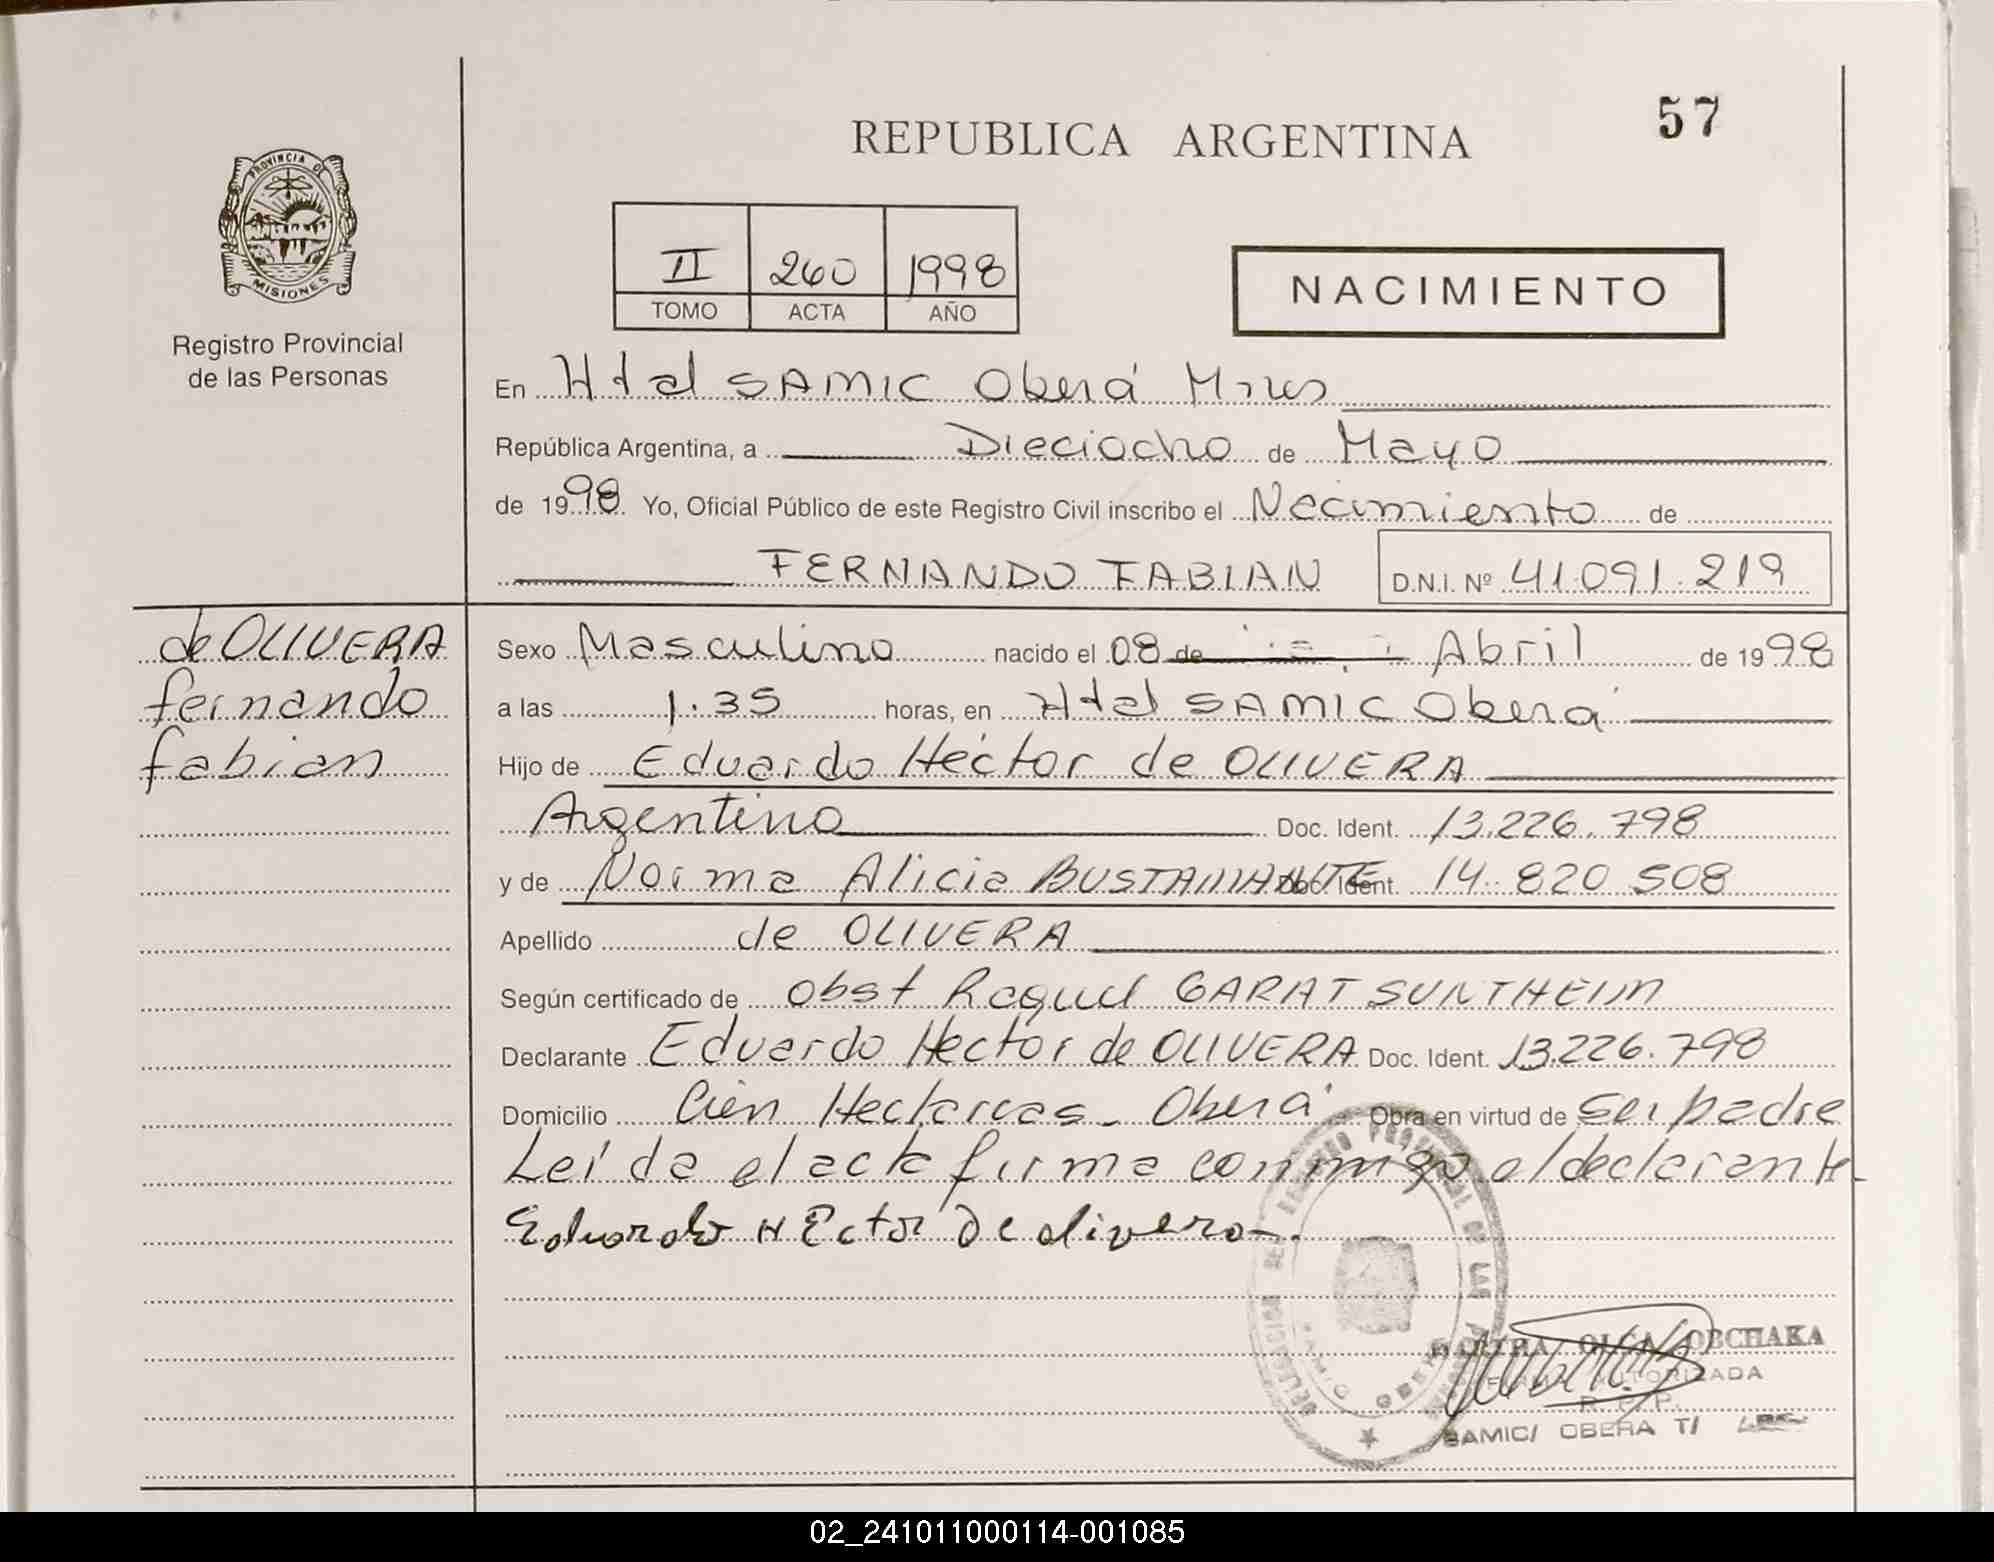 57
REPUBLICA ARGENTINA
PROVINCIA DE
MISIONES
Registro Provincial
de las Personas
II 260 1998
TOMO ACTA AÑO
NACIMIENTO
En Htal SAMIC Oberá Mnes
República Argentina, a Dieciocho de Mayo
de 1998 Yo, Oficial Público de este Registro Civil inscribo el Nacimiento de
FERNANDO FABIAN D.N.I. Nº 41.091.219
de OLIVERA
fernando
fabian
Sexo Masculino nacido el 08 de Abril de 1998
a las 1.35 horas, en Htal SAMIC Oberá
Hijo de Eduardo Héctor de OLIVERA
Argentino Doc. Ident. 13.226.798
y de Norma Alicia BUSTAMANTE Doc. Ident. 14.820.508
Apellido de OLIVERA
Según certificado de Obst Raquel GARAT SUNTHEIM
Declarante Eduardo Hector de OLIVERA Doc. Ident. 13.226.798
Domicilio Cien Hectareas - Oberá Obra en virtud de ser padre
Leída el acta firma conmigo el declarante
Eduardo HEctor De olivera.
DELEGACION DEL REGISTRO PROVINCIAL DE LAS PERSONAS
SAMIC OBERA
OLGA OBCHAKA
FIRMA AUTORIZADA
R. P. P.
SAMIC/ OBERA T/
02_241011000114-001085